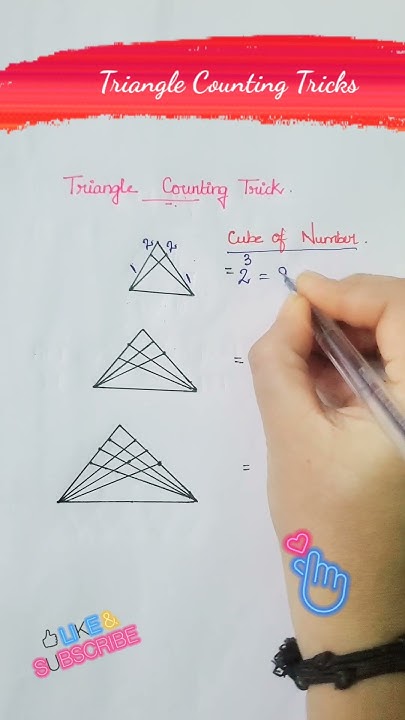 Triangle Counting Tricks
Triangle Counting Trick.
Cube of Number.
2 2
1 1
= 2³ = 8
=
=
LIKE &
SUBSCRIBE